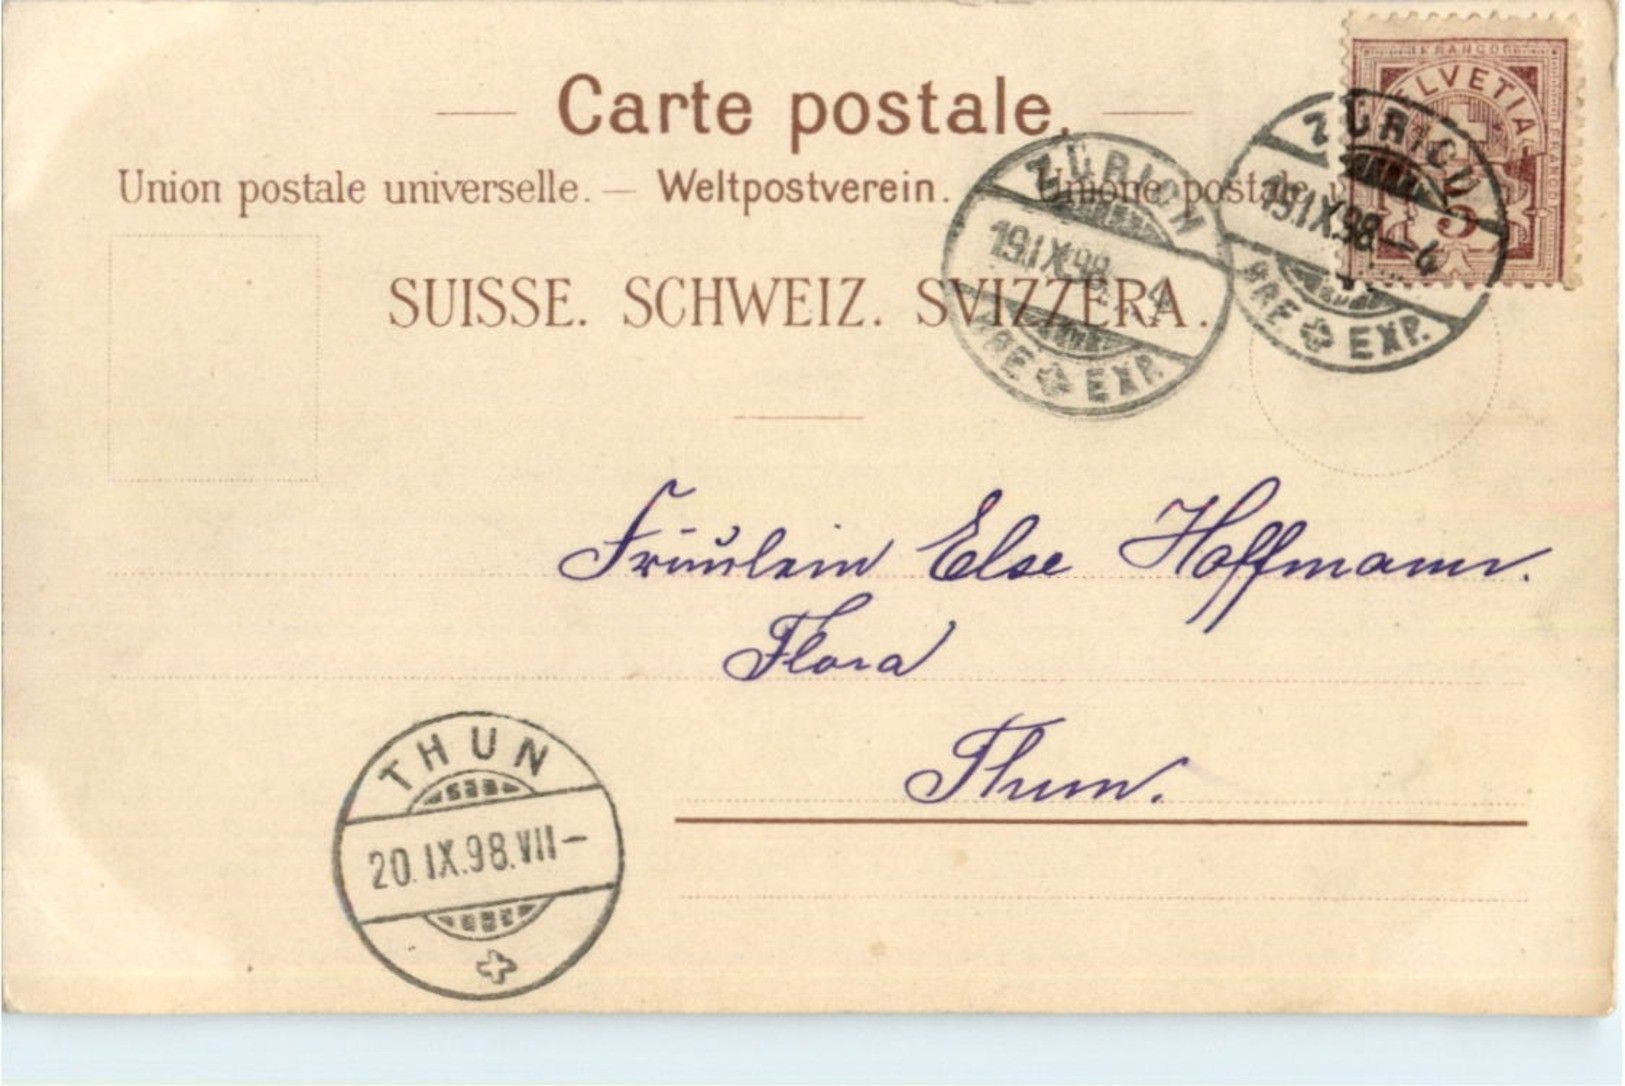 Carte postale.
FRANCO
HELVETIA
5
Union postale universelle. — Weltpostverein. — Unione postale
ZÜRICH
19.IX.98.–4
BRF. EXP.
ZÜRICH
19.IX.98.–4
BRF. EXP.
SUISSE. SCHWEIZ. SVIZZERA.
Fräulein Else Hoffmann.
Flora
Thun.
THUN
20.IX.98.VII–